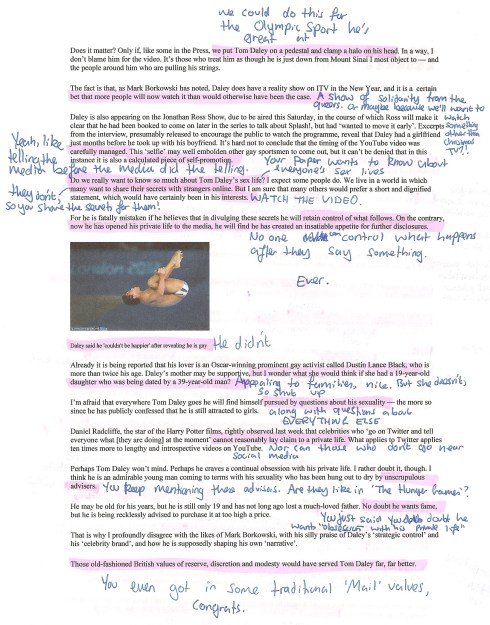 we could do this for
the Olympic Sport he's,
great at
Does it matter? Only if, like some in the Press, we put Tom Daley on a pedestal and clamp a halo on his head. In a way, I
don't blame him for the video. It's those who treat him as though he is just down from Mount Sinai I most object to — and
the people around him who are pulling his strings.
The fact is that, as Mark Borkowski has noted, Daley does have a reality show on ITV in the New Year, and it is a certain
bet that more people will now watch it than would otherwise have been the case.
A show of solidarity from the
queers. Or maybe because we'll want to
watch
something
other than
Christmas
TV?!
Daley is also appearing on the Jonathan Ross Show, due to be aired this Saturday, in the course of which Ross will make it
clear that he had been booked to come on later in the series to talk about Splash!, but had 'wanted to move it early'. Excerpts
from the interview, presumably released to encourage the public to watch the programme, reveal that Daley had a girlfriend
just months before he took up with his boyfriend. It's hard not to conclude that the timing of the YouTube video was
carefully managed. This 'selfie' may well embolden other gay sportsmen to come out, but it can't be denied that in this
instance it is also a calculated piece of self-promotion.
Yeah, like
telling the
media before the media did the telling.
Your paper wants to know about
everyone's sex lives
Do we really want to know so much about Tom Daley's sex life? I expect some people do. We live in a world in which
many want to share their secrets with strangers online. But I am sure that many others would prefer a short and dignified
statement, which would have certainly been in his interests.
WATCH THE VIDEO.
they don't,
so you share the secrets for them!
For he is fatally mistaken if he believes that in divulging these secrets he will retain control of what follows. On the contrary,
now he has opened his private life to the media, he will find he has created an insatiable appetite for further disclosures.
No one can control what happens
after they say something.
Ever.
Daley said he 'couldn't be happier' after revealing he is gay
He didn't
Already it is being reported that his lover is an Oscar-winning prominent gay activist called Dustin Lance Black, who is
more than twice his age. Daley's mother may be supportive, but I wonder what she would think if she had a 19-year-old
daughter who was being dated by a 39-year-old man?
Appealing to families, nice. But she doesn't,
so shut up
I'm afraid that everywhere Tom Daley goes he will find himself pursued by questions about his sexuality — the more so
since he has publicly confessed that he is still attracted to girls.
along with questions about
EVERYTHING ELSE
Daniel Radcliffe, the star of the Harry Potter films, rightly observed last week that celebrities who 'go on Twitter and tell
everyone what [they are doing] at the moment' cannot reasonably lay claim to a private life. What applies to Twitter applies
ten times more to lengthy and introspective videos on YouTube.
Nor can those who don't go near
social media
Perhaps Tom Daley won't mind. Perhaps he craves a continual obsession with his private life. I rather doubt it, though. I
think he is an admirable young man coming to terms with his sexuality who has been hung out to dry by unscrupulous
advisers.
You keep mentioning these advisers. Are they like in 'The Hunger Games'?
He may be old for his years, but he is still only 19 and has not long ago lost a much-loved father. No doubt he wants fame,
but he is being recklessly advised to purchase it at too high a price.
You just said you doubt he
wants "obsession with his private life"
That is why I profoundly disagree with the likes of Mark Borkowski, with his silly praise of Daley's 'strategic control' and
his 'celebrity brand', and how he is supposedly shaping his own 'narrative'.
Those old-fashioned British values of reserve, discretion and modesty would have served Tom Daley far, far better.
You even got in some traditional 'Mail' values,
Congrats.